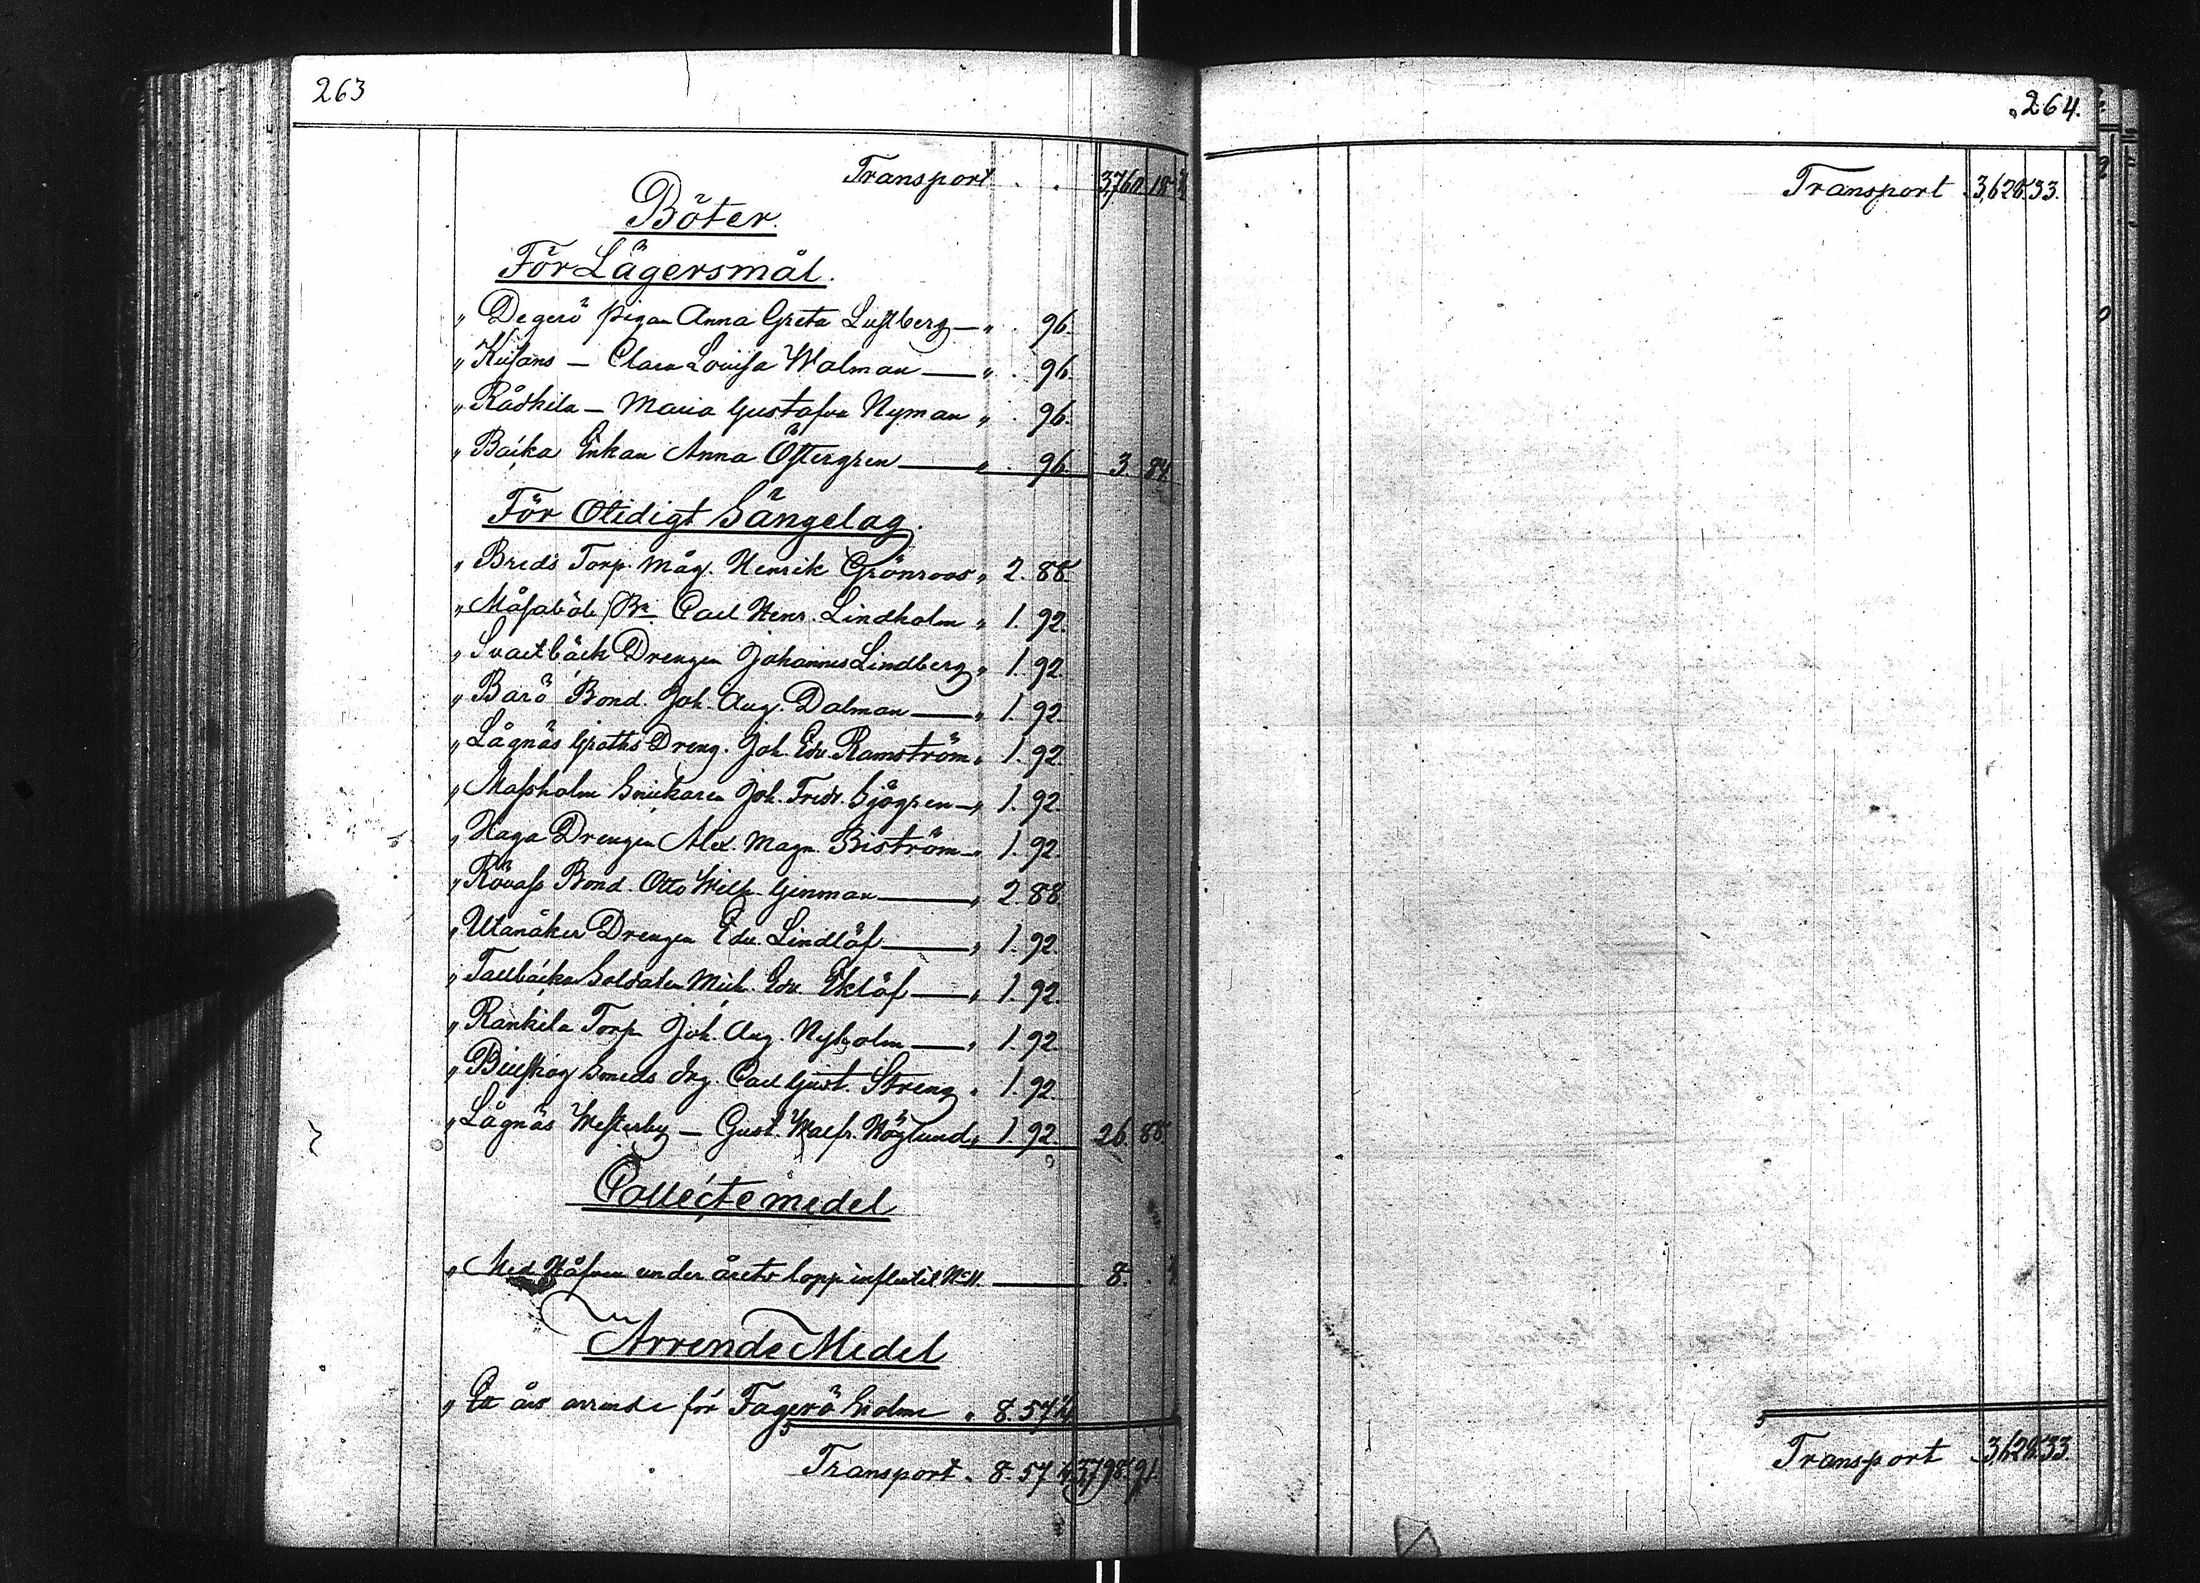 263
Transport . . 3,760 18
Böter.
För Lägersmål.
„ Degerö pigan Anna Greta Lustberg — „ . 96.
„ Kusans — Clara Lovisa Walman — „ . 96.
„ Rådkila — Maria Gustafva Nyman „ . 96.
„ Backa Enkan Anna Östergren — „ . 96. 3. 84.
För Otidigt Sängelag.
„ Breds Torp. Måg. Henrik Grönroos „ 2. 88.
„ Måsaböle Carl Henr. Lindholm „ 1. 92.
„ Svartbäck Drengen Johannes Lindberg „ 1. 92.
„ Barö Bond. Joh. Aug. Dalman — „ 1. 92.
„ Lågnäs Groths Dreng. Joh. Edv. Ramström „ 1. 92.
„ Massholm Snickaren Joh. Fredr. Sjögren — „ 1. 92.
„ Haga Drengen Alex. Magn. Biström — „ 1. 92.
„ Rövass Bond. Otto Wilh. Ginman — „ 2. 88.
„ Utanåker Drengen Edv. Lindlöf — „ 1. 92.
„ Tallbacka Soldaten Mich. Edv. Eklöf — „ 1. 92.
„ Rankila Torp. Joh. Aug. Nyholm — „ 1. 92.
„ Smeds drg. Carl Gust. Streng „ 1. 92.
„ Lågnäs Westerby — Gust. Walfr. Höglund „ 1. 92. 26. 88.
Collecte medel
„ Med Håfven under årets lopp influtit — 8.
Arrende Medel
„ Ett års arrende för Fagerö holme „ 8. 57 1/4
Transport . 8. 57 1/4 3,798. 91.
264.
Transport . 3,628. 33.
Transport . 3,628. 33.